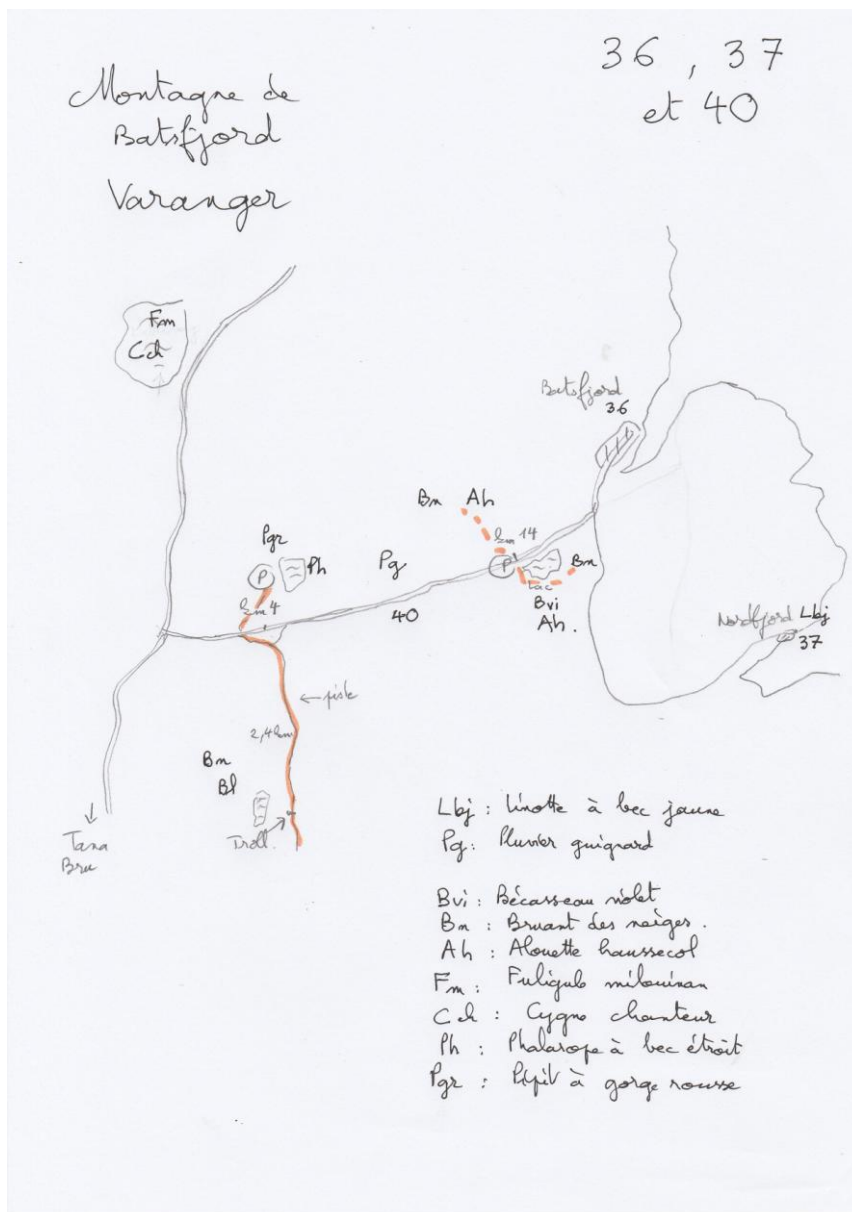 Montagne de
Batsfjord
Varanger
36, 37
et 40
Fm
Cch
Batsfjord
36
Bn Ah
km 14
Pgr
P
Ph
Pg
P
Bn
Lac
Bvi
Ah.
km 4
40
Nordfjord Lbj
37
← piste
2,4 km
Bn
Bl
Troll.
Tana
Bru
Lbj : Linotte à bec jaune
Pg : Pluvier guignard
Bvi : Bécasseau violet
Bn : Bruant des neiges.
Ah : Alouette haussecol
Fm : Fuligule milouinan
Cch : Cygne chanteur
Ph : Phalarope à bec étroit
Pgr : Pipit à gorge rousse